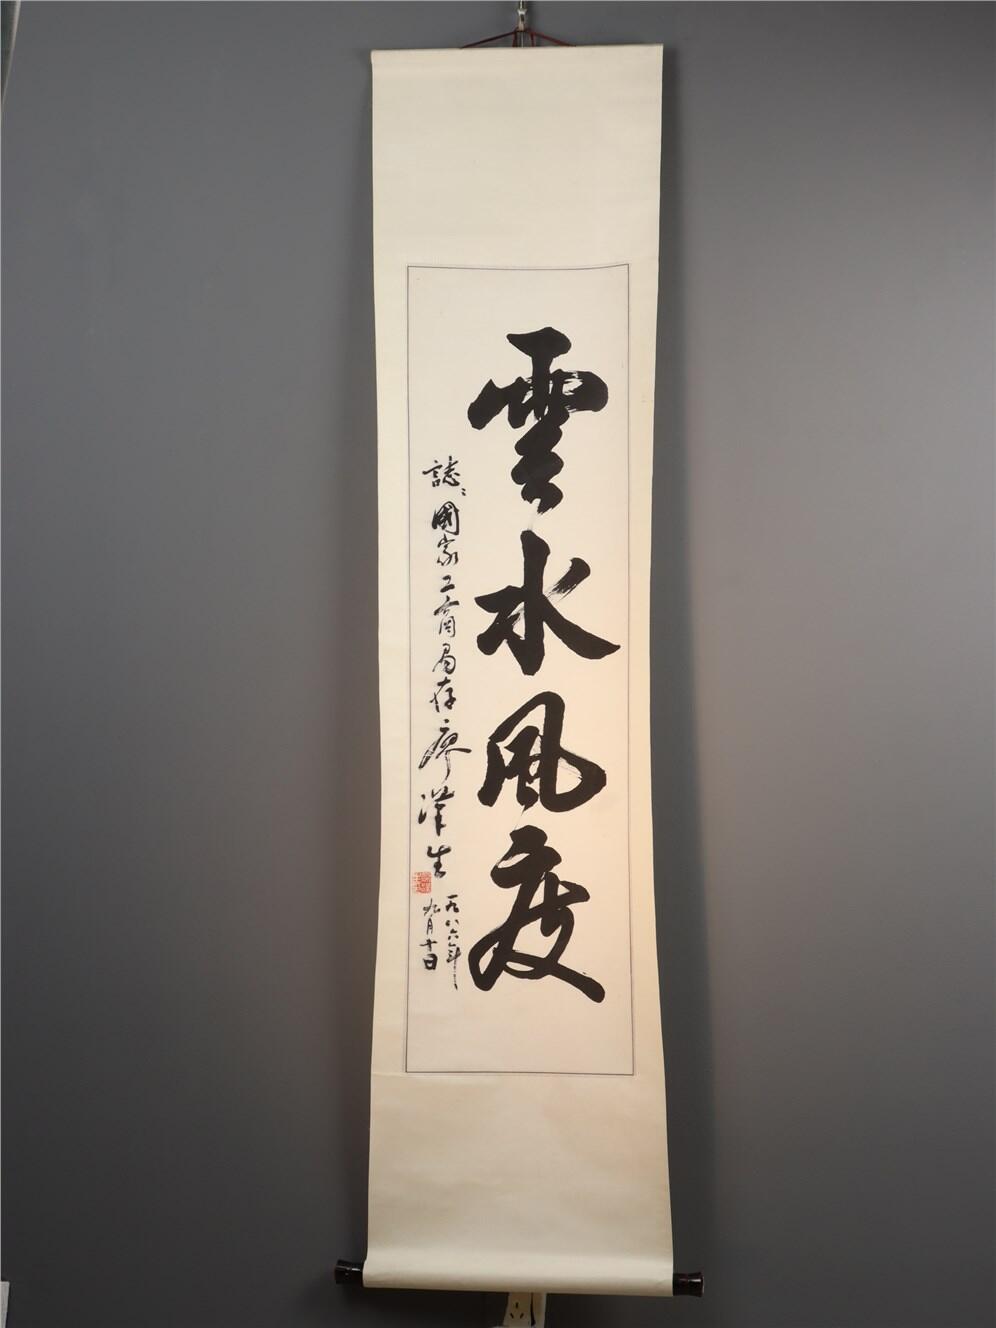 雲水風度
誌：國家工商局存廖漢生
一九八六年
九月十日